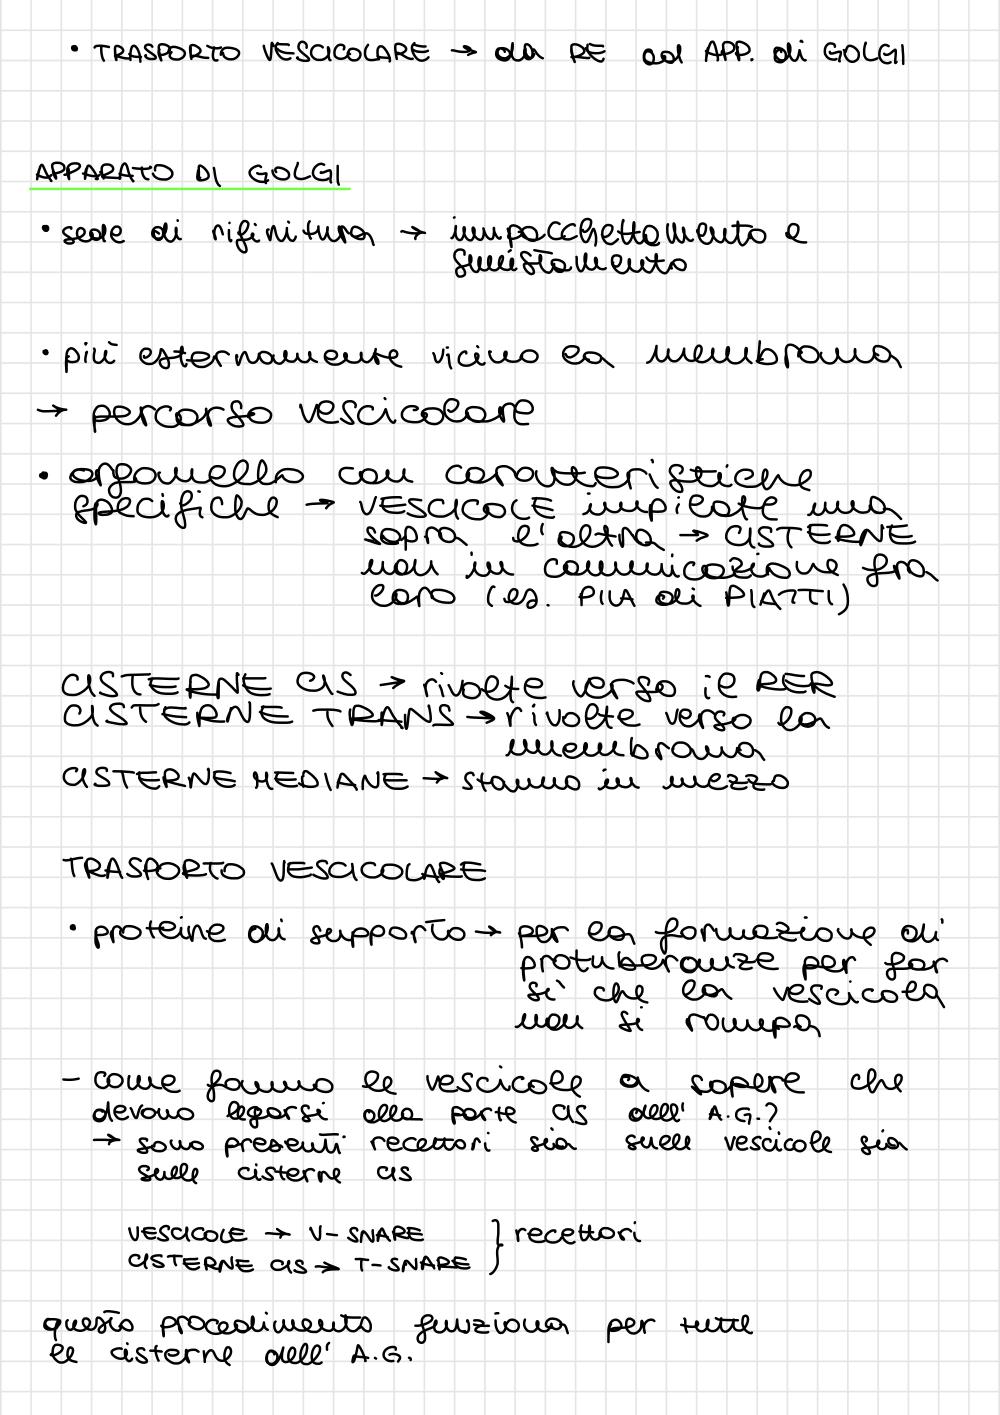 • TRASPORTO VESCICOLARE → da RE ad APP. di GOLGI
APPARATO DI GOLGI
• sede di rifinitura → impacchettamento e
smistamento
• più esternamente vicino la membrana
→ percorso vescicolare
• organello con caratteristiche
specifiche → VESCICOLE impilate una
sopra l'altra → CISTERNE
non in comunicazione fra
loro (es. PILA di PIATTI)
CISTERNE CIS → rivolte verso il RER
CISTERNE TRANS → rivolte verso la
membrana
CISTERNE MEDIANE → stanno in mezzo
TRASPORTO VESCICOLARE
• proteine di supporto → per la formazione di
protuberanze per far
sì che la vescicola
non si rompa
- come fanno le vescicole a sapere che
devono legarsi alla parte cis dell' A.G.?
→ sono presenti recettori sia sulle vescicole sia
sulle cisterne cis
VESCICOLE → V-SNARE } recettori
CISTERNE CIS → T-SNARE
questo procedimento funziona per tutte
le cisterne dell' A.G.